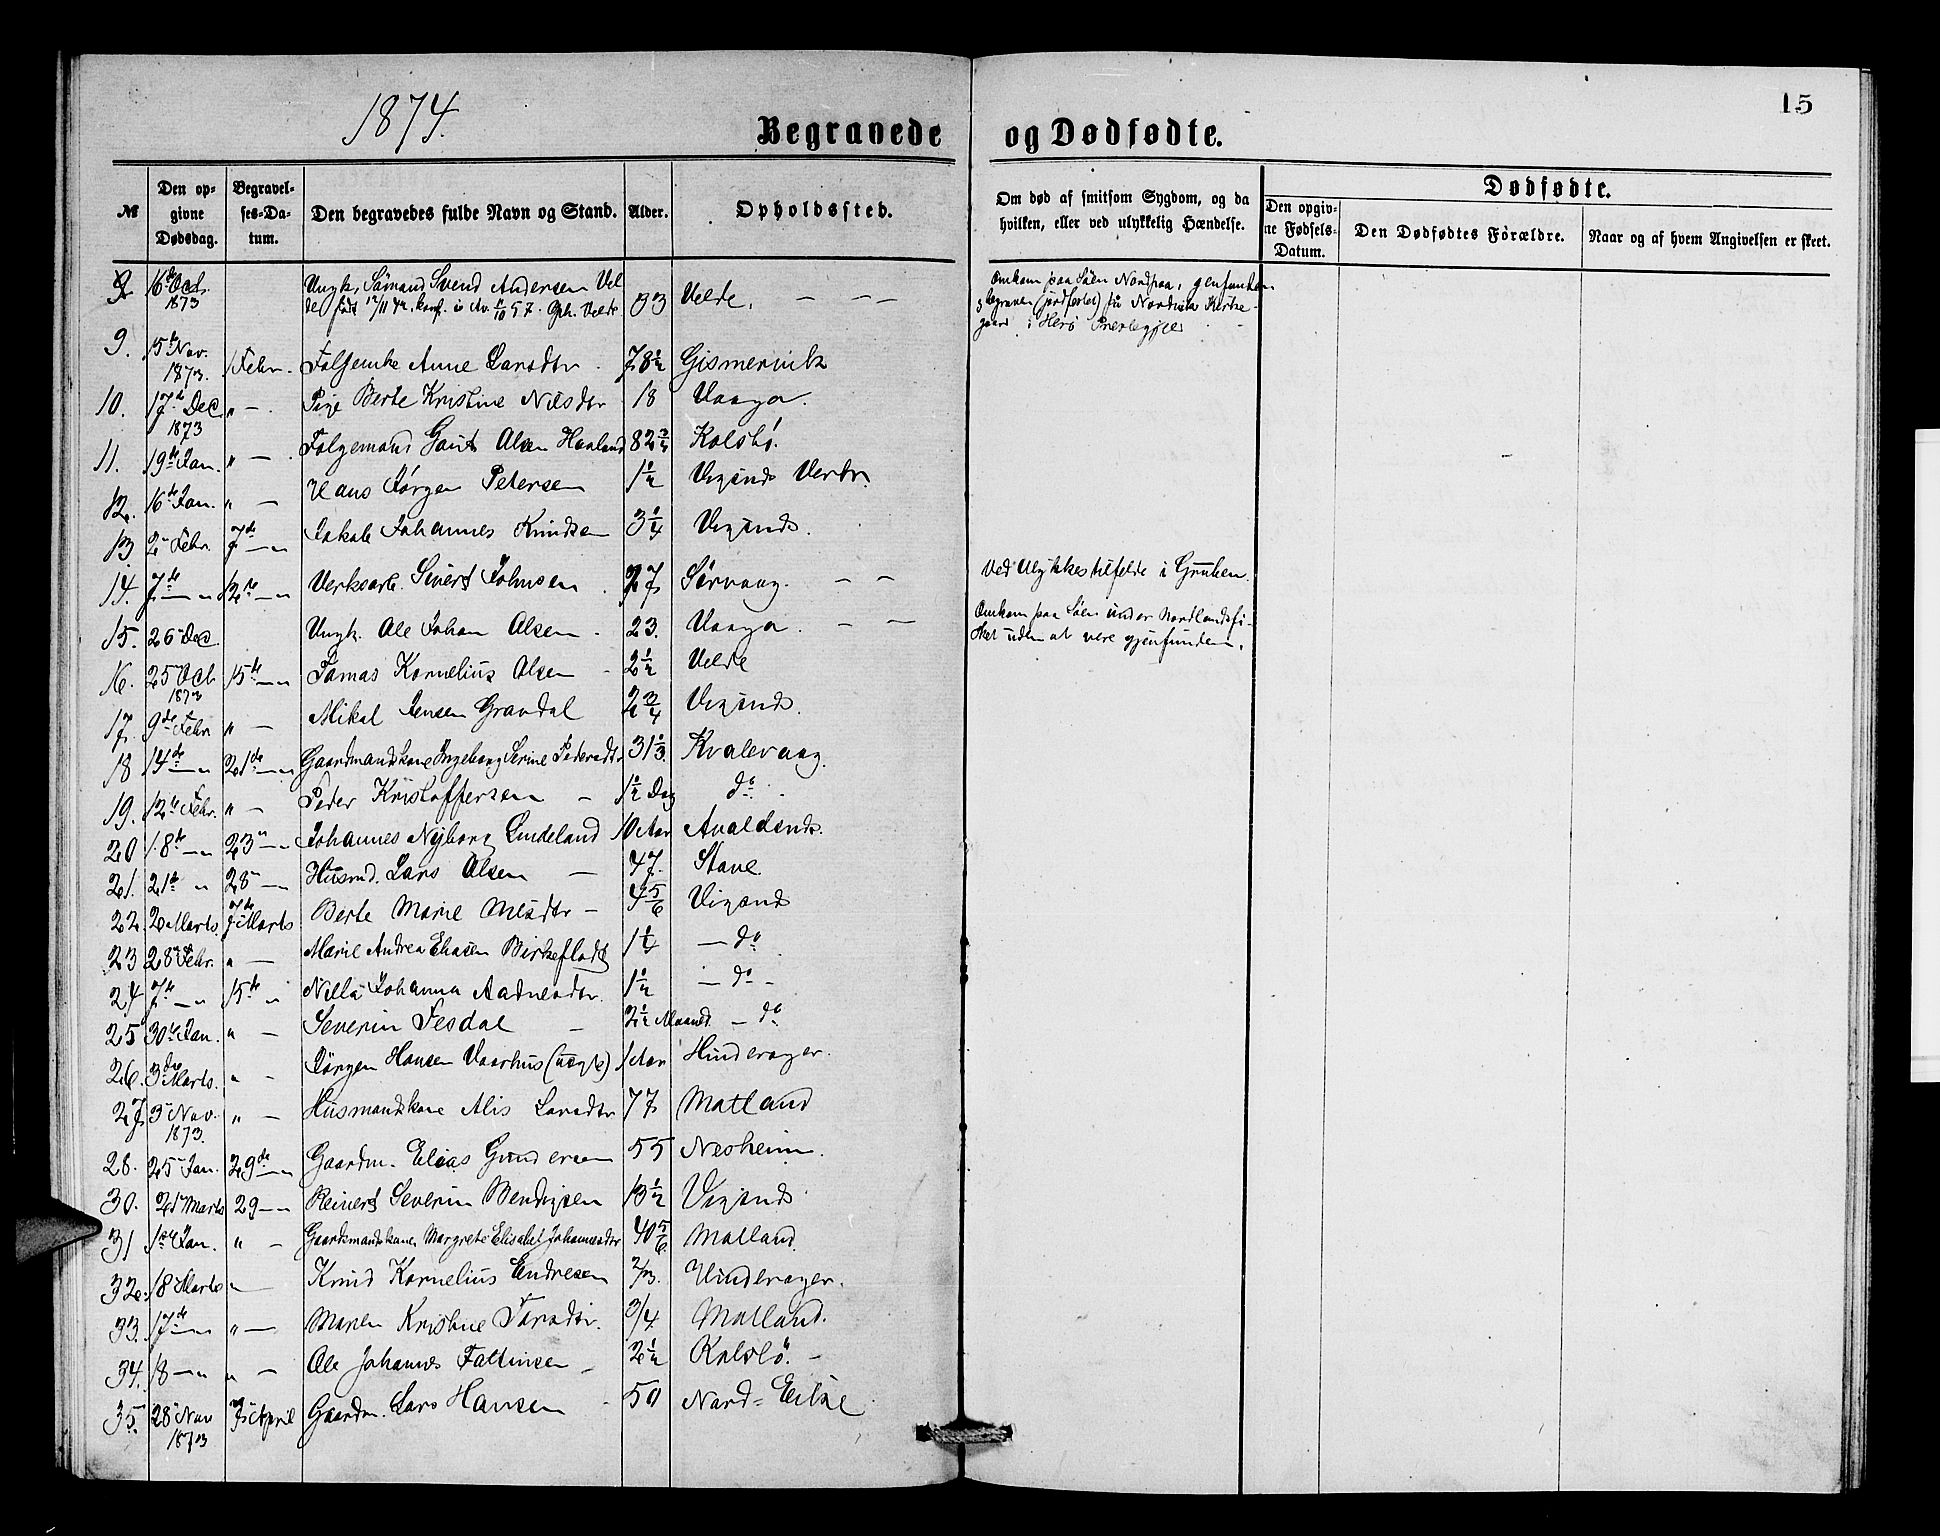 1874.
Begravede og Dødfødte.
15
№
Den opgivne Dødsdag.
Begravelses-Datum.
Den begravedes fulde Navn og Stand.
Alder.
Opholdssted.
Om død af smitsom Sygdom, og da hvilken, eller ved ulykkelig Hændelse.
Dødfødte.
Den opgivne Fødsels-Datum.
Den Dødfødtes Forældre.
Naar og af hvem Angivelsen er skeet.
16de Octr. 1873 Ungk. Sømand Svend Andersen Velde 33 Velde. — — — Omkom paa Søen Nordpaa,
født 12/11 konf. i Av. Velde begraven
i Herø Prestegjeld
9. 15 Nov. 1873. 1 Febr. Følgemke Anne Larsdtr. 78½ Gismervik
10. 17de Dec 1873 " — Pige Berte Kristine Nilsdtr 18 Vaaga.
11. 19de Jan. " — Følgemand Gaut Olsen Haaland 82¾ Kolstø.
12. 16de Jan. " — Hans Jørgen Petersen 1½ Vigsnds Verk
13. 2 Febr. 7de — " Jakob Johannes Knudsen 3¼ Vigsnds.
14. 7de — " 12te — " Verksarb. Sivert Johnsen 27 Sørvaag. — — Ved Ulykkestilfelde i Gruben.
15. 26 Dec Ungk. Ole Johan Olsen. 23. Vaaga. — — Omkom paa Søen under Nordlandsfi-
sket uden at vere gjenfunden.
16. 25 Oct 1873 15de — " Tomas Kornelius Olsen 2½ Velde
17. 9de Febr " — Mikal Jensen Gravdal 2¾ Vigsnds.
18 14de — " 21de — " Gaardmandskone Ingeborg Serine Pedersdtr 31⅓. Kvalevaag.
19. 12te Febr. " — Peder Kristoffersen — 1½ Dag do.
20 18de — " 23 — " Johannes Nyborg Lindeland 10 Aar Avaldsnds.
21. 21de " 28 — " Husmd. Lars Olsen — 47. Stave.
22. 2 Marts. 7de Marts Berte Marie Nilsdtr — 4⅚ Vigsnds
23 28 Febr. " — Marie Andrea Eliasen Birkeflodt 1¼ — do
24 7de — " 15de " Nilla Johanna Aadnesdtr. 1½ — do —
25 30te Jan. " — Severin Tesdal — 2½ Maaned. — do
26. 3de Marts. " — Jørgen Hansen Vaarhus (uegte) 1 Aar Hinderager.
27 3 Nov. 1873. " — Husmandskone Alis Larsdtr 77 Matland
28. 25 Jan. 29de — " Gaardm. Elias Gundersen 55 Nesheim.
30. 21 Marts 29 — " Reinert Severin Bendigsen 13½ Vigsnds
31 1ste Jan. " — Gaardmandskone Margrete Elisabet Johannesdtr 40⅚ Matland.
32. 18 Marts " — Knud Kornelius Endresen 2/3. Hinderager.
33. 17de — " " — Maren Kristine Larsdtr. 3/4 Matland.
34. 18 — " " — Ole Johannes Faltinsen — 2½ Kolstø. —
35. 28 Nov 1873 7 April Gaardm. Lars Hansen 50 Nord-Eike